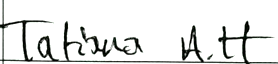 Tatiana A.H